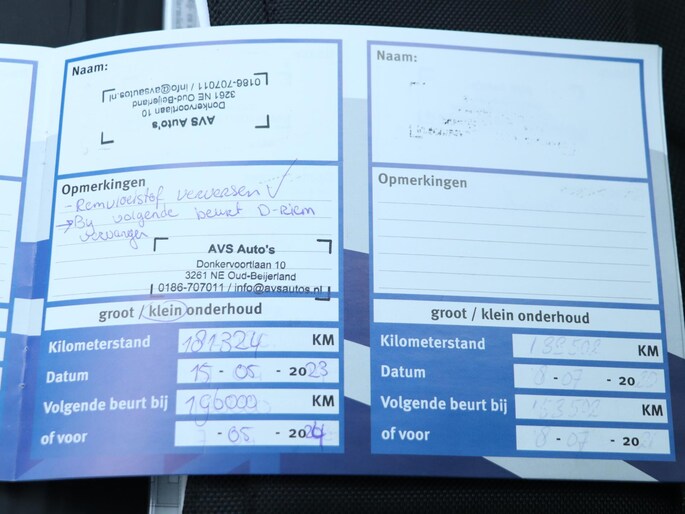 Naam:
AVS Auto's
Donkervoortlaan 10
3261 NE Oud-Beijerland
0186-707011 / info@avsautos.nl
Opmerkingen
- Remvloeistof verversen ✓
→ By volgende beurt D-riem
vervangen
AVS Auto's
Donkervoortlaan 10
3261 NE Oud-Beijerland
0186-707011 / info@avsautos.nl
groot / klein onderhoud
Kilometerstand 181324 KM
Datum 15 - 05 - 2023
Volgende beurt bij 196000 KM
of voor - 05 - 2024
Naam:
Opmerkingen
groot / klein onderhoud
Kilometerstand KM
Datum 8-07 - 20
Volgende beurt bij KM
of voor 8-07 - 20